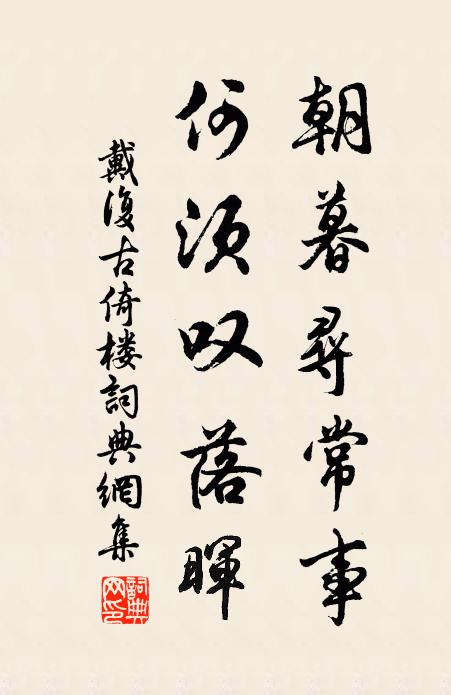 朝暮尋常事
何須叹落暉
戴復古倚楼詞典網集
詞典网印